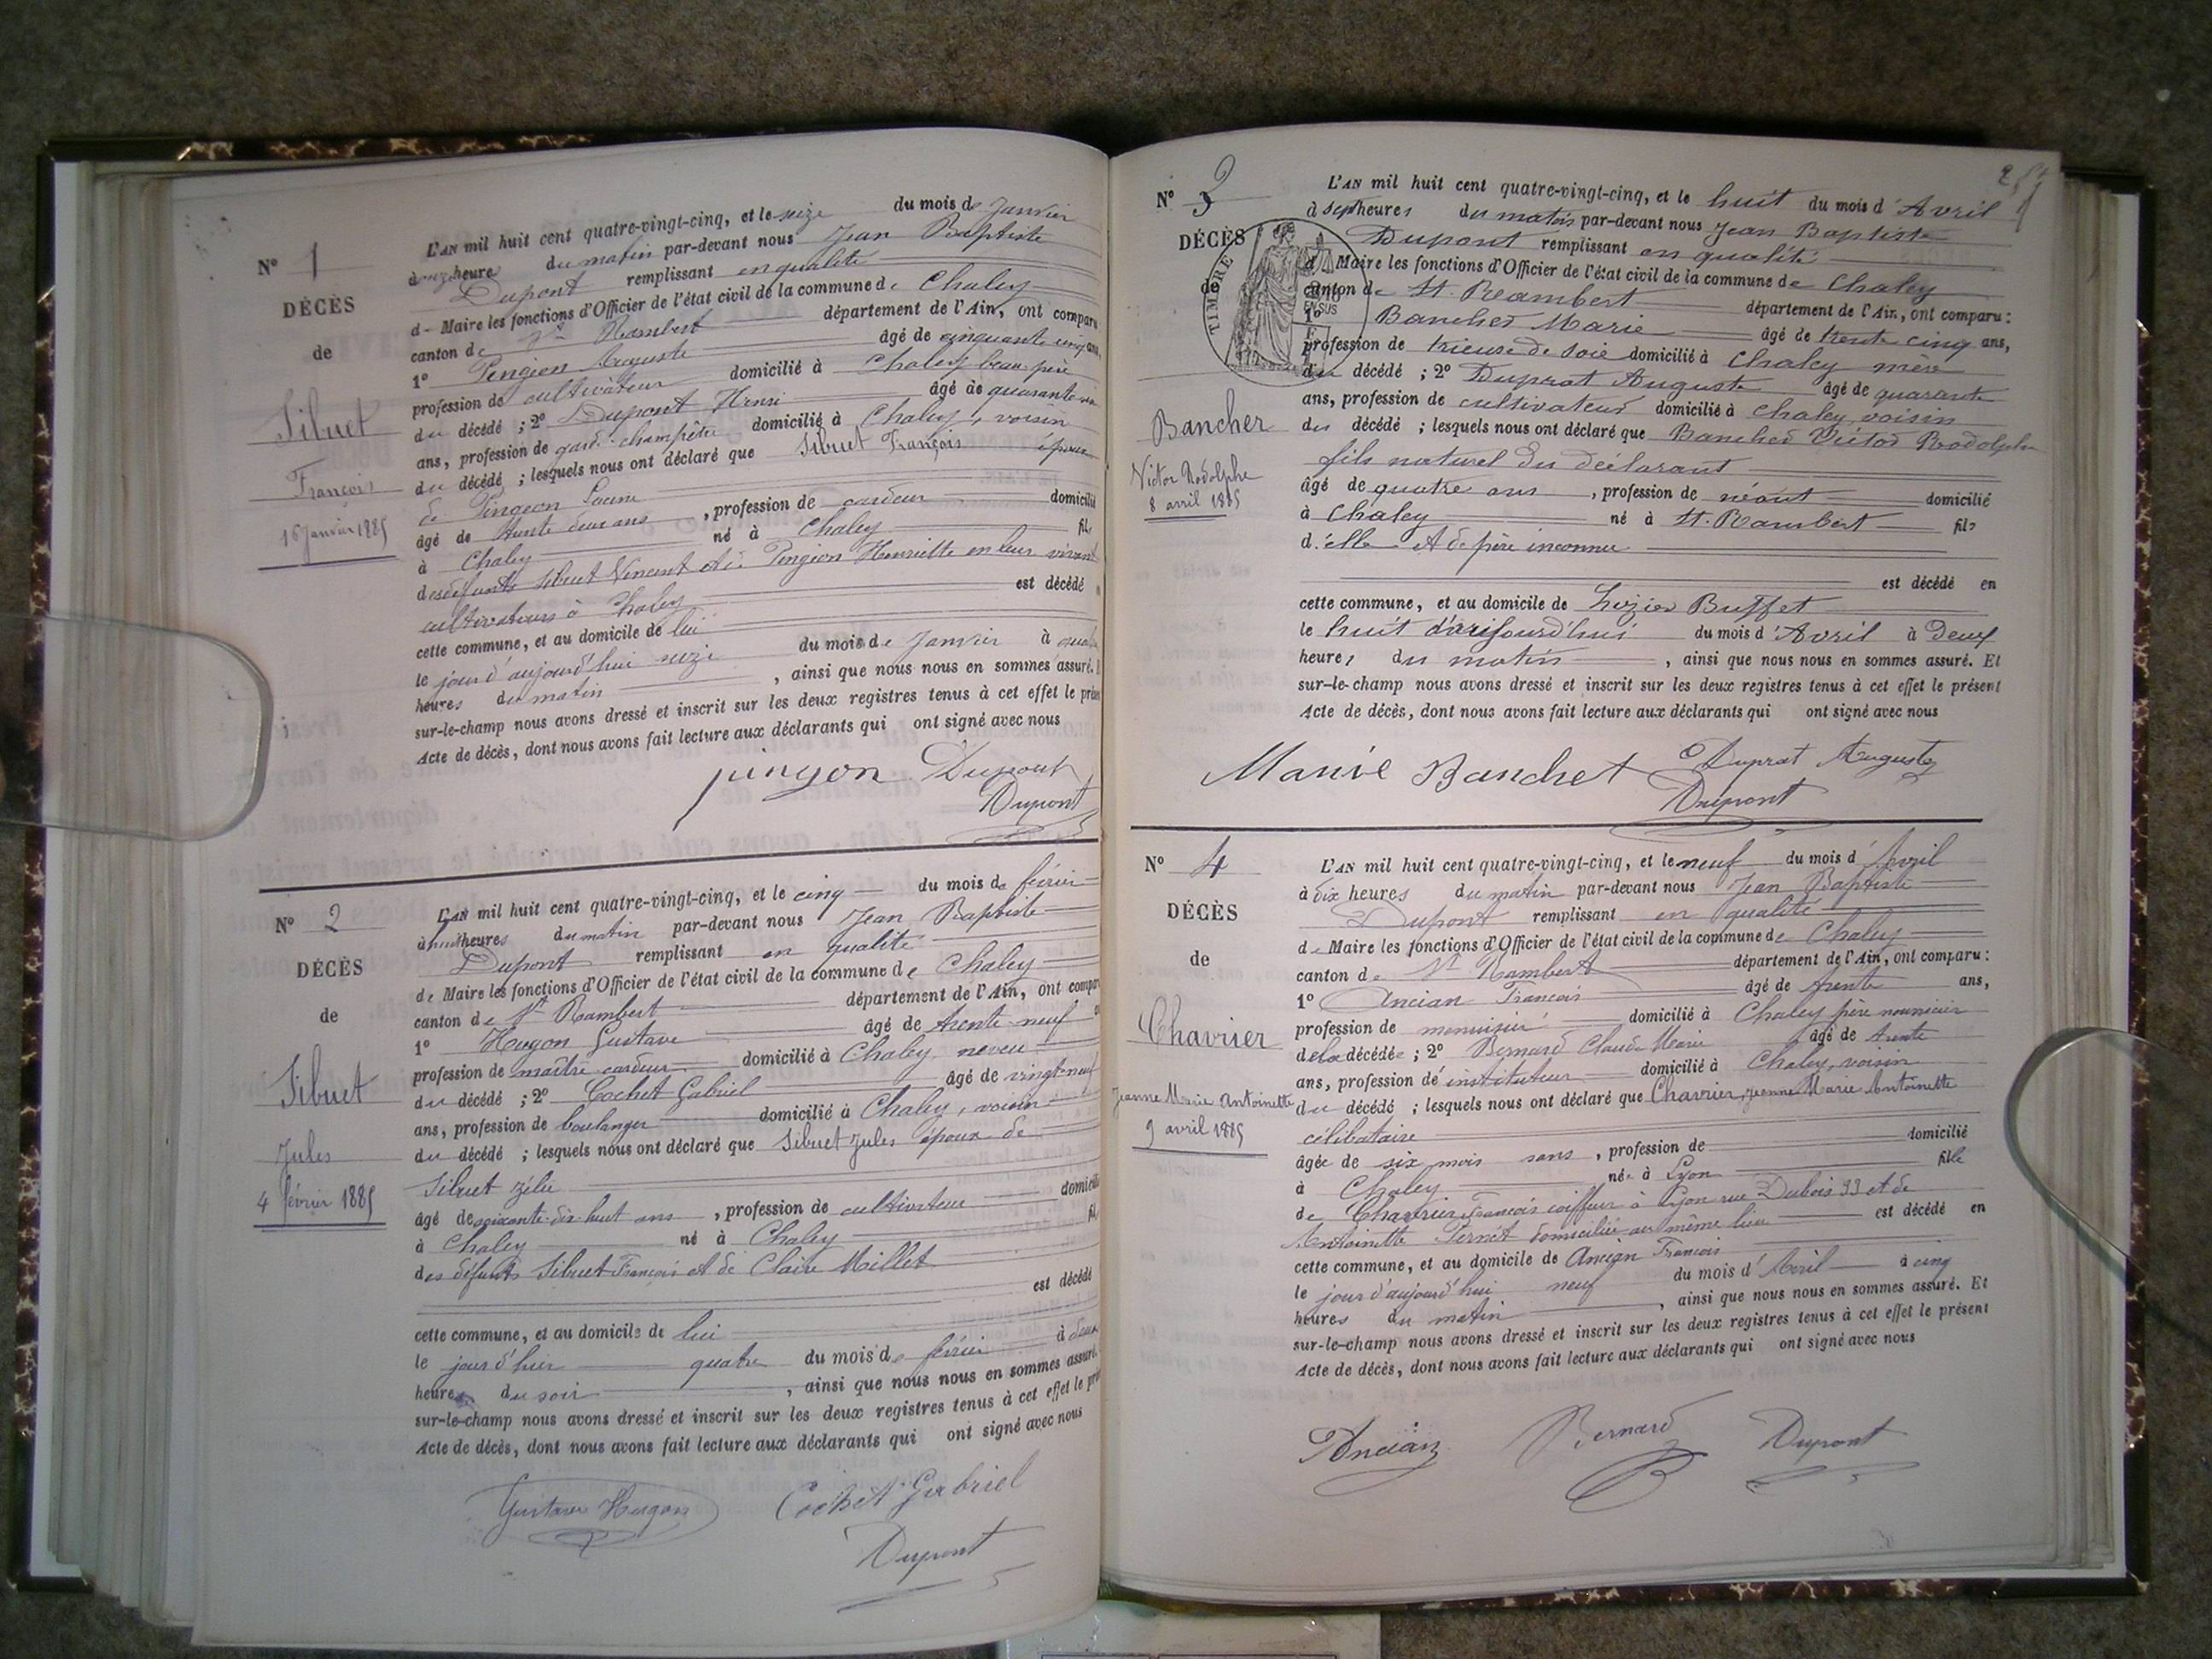 N° 1
DÉCÈS
de
Sibuet
François
16 Janvier 1885
L'AN mil huit cent quatre-vingt-cinq, et le seize du mois de Janvier
à onze heure du matin par-devant nous Jean Baptiste
Dupont remplissant en qualité
de Maire les fonctions d'Officier de l'état civil de la commune de Chaley
canton de St Rambert département de l'Ain, ont comparu
1° Pingeon Auguste âgé de cinquante cinq ans,
profession de cultivateur domicilié à Chaley beau-père
du décédé ; 2° Dupont Henri âgé de quarante
ans, profession de garde-champêtre domicilié à Chaley, voisin
du décédé ; lesquels nous ont déclaré que Sibuet François époux
de Pingeon
âgé de trente deux ans , profession de cardeur domicilié
à Chaley né à Chaley fils
des défunts Sibuet Vincent et de Pingeon Henriette en leur vivant
cultivateurs à Chaley est décédé
cette commune, et au domicile de lui
le jour d'aujourd'hui seize du mois de Janvier à
heures du matin , ainsi que nous nous en sommes assuré.
sur-le-champ nous avons dressé et inscrit sur les deux registres tenus à cet effet le
Acte de décès, dont nous avons fait lecture aux déclarants qui ont signé avec nous
pingeon Dupont
Dupont
N° 2
DÉCÈS
de
Sibuet
Jules
4 février 1885
L'AN mil huit cent quatre-vingt-cinq, et le cinq du mois de février
à huit heures du matin par-devant nous Jean Baptiste
Dupont remplissant en qualité
de Maire les fonctions d'Officier de l'état civil de la commune de Chaley
canton de St Rambert département de l'Ain, ont
1° Hugon Gustave âgé de trente-neuf
profession de maître cardeur domicilié à Chaley, neveu
du décédé ; 2° Cochet Gabriel âgé de vingt-neuf
ans, profession de boulanger domicilié à Chaley, voisin
du décédé ; lesquels nous ont déclaré que Sibuet Jules époux de
Sibuet Zélie
âgé de soixante-dix-huit ans , profession de cultivateur
à Chaley né à Chaley
des défunts Sibuet François et de Claire Millet
est décédé
cette commune, et au domicile de lui
le jour d'hier quatre du mois de février à deux
heures du soir , ainsi que nous nous en sommes assuré.
sur-le-champ nous avons dressé et inscrit sur les deux registres tenus à cet effet le
Acte de décès, dont nous avons fait lecture aux déclarants qui ont signé avec nous
Gustave Hugon Cochet Gabriel
Dupont
N° 3
DÉCÈS
de
TIMBRE
Bancher
Victor Rodolphe
8 avril 1885
L'AN mil huit cent quatre-vingt-cinq, et le huit du mois d'Avril
à sept heures du matin par-devant nous Jean Baptiste
Dupont remplissant en qualité
d Maire les fonctions d'Officier de l'état civil de la commune de Chaley
canton de St. Rambert département de l'Ain, ont comparu :
1° Bancher Marie âgé de trente cinq ans,
profession de trieuse de soie domicilié à Chaley mère
du décédé ; 2° Duprat Auguste âgé de quarante
ans, profession de cultivateur domicilié à Chaley, voisin
du décédé ; lesquels nous ont déclaré que Bancher Victor Rodolphe
fils naturel du déclarant
âgé de quatre ans , profession de néant domicilié
à Chaley né à St. Rambert fils
d'elle et de père inconnu
est décédé en
cette commune, et au domicile de Lozier Buffet
le huit d'aujourd'hui du mois d'Avril à Deux
heures du matin , ainsi que nous nous en sommes assuré. Et
sur-le-champ nous avons dressé et inscrit sur les deux registres tenus à cet effet le présent
Acte de décès, dont nous avons fait lecture aux déclarants qui ont signé avec nous
Marie Banchet Duprat Auguste
Dupont
N° 4
DÉCÈS
de
Chavrier
Jeanne Marie Antoinette
9 avril 1885
L'AN mil huit cent quatre-vingt-cinq, et le neuf du mois d'Avril
à dix heures du matin par-devant nous Jean Baptiste
Dupont remplissant en qualité
de Maire les fonctions d'Officier de l'état civil de la commune de Chaley
canton de St Rambert département de l'Ain, ont comparu :
1° Ancian François âgé de trente ans,
profession de menuisier domicilié à Chaley père nourricier
de la décédée ; 2° Bernard Claude Marie âgé de trente
ans, profession d'instituteur domicilié à Chaley, voisin
du décédé ; lesquels nous ont déclaré que Chavrier, Jeanne Marie Antoinette
célibataire
âgée de six mois sans , profession de domicilié
à Chaley née à Lyon fille
de Chavrier François coiffeur à Lyon rue Dubois 33 et de
Antoinette Pernet domiciliée au même lieu est décédé en
cette commune, et au domicile de Ancian François
le jour d'aujourd'hui neuf du mois d'Avril à cinq
heures du matin , ainsi que nous nous en sommes assuré. Et
sur-le-champ nous avons dressé et inscrit sur les deux registres tenus à cet effet le présent
Acte de décès, dont nous avons fait lecture aux déclarants qui ont signé avec nous
Ancian Bernard Dupont